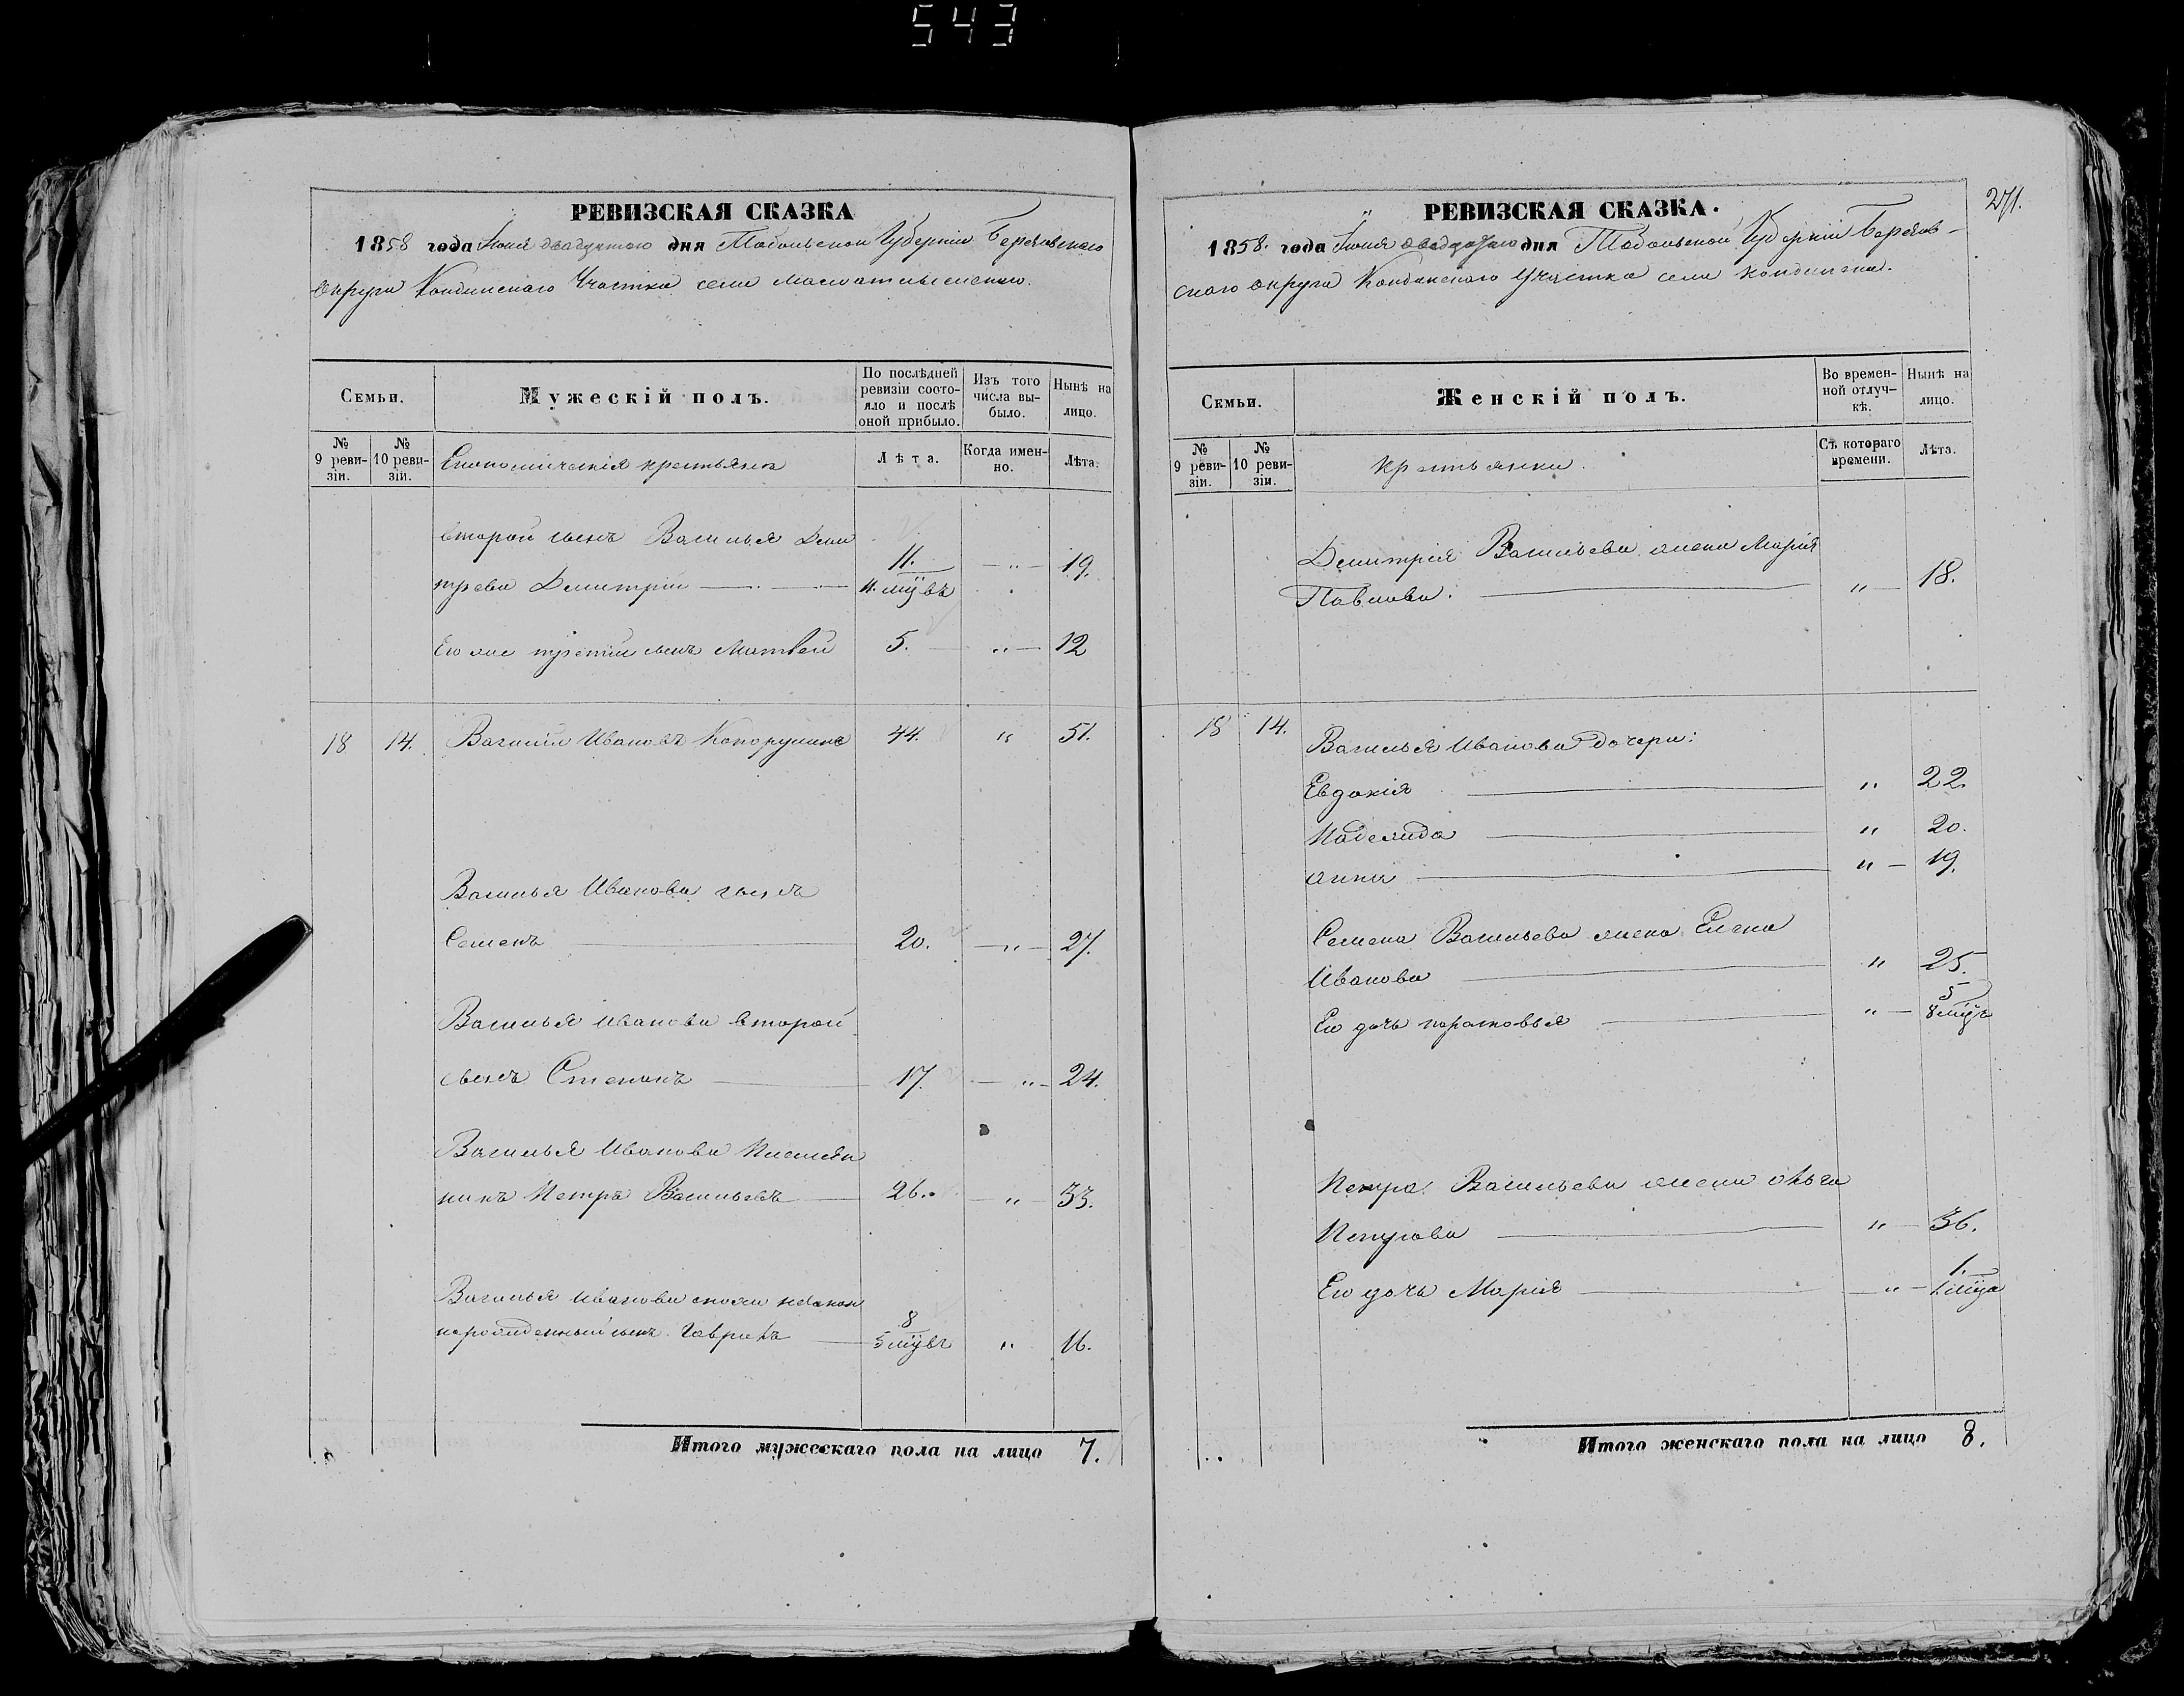 543
РЕВИЗСКАЯ СКАЗКА
1858 года Іюня двадцатого дня Тобольской Губерніи Березовскаго
Округа Кондинскаго Участка села
Семьи.
Мужескій полъ.
По послѣдней ревизіи состояло и послѣ оной прибыло.
Изъ того числа выбыло.
Нынѣ на лицо.
№ 9 ревизіи.
№ 10 ревизіи.
Економическія крестьяне
Лѣта.
Когда именно.
Лѣта.
второй сынъ Василья Дми
11.
трева Дмитрій 11. мцвъ " 19.
Его же третій сынъ Матвей 5. " 12
18 14. Василій Ивановъ 44. " 51.
Василья Иванова сынъ
Семенъ 20. " 27.
Василья Иванова второй
сынъ Степанъ 17. " 24.
Василья Иванова Племян
никъ Петръ Васильевъ 26. " 33.
Василья Иванова незакон
8
норожденный сынъ Гаврилъ 5 мцвъ " 16.
Итого мужескаго пола на лицо 7.
271.
РЕВИЗСКАЯ СКАЗКА.
1858. года Іюня двадцатаго дня Тобольской Губерніи Березов-
скаго округа Кондинскаго Участка села Кондинска.
Семьи.
Женскій полъ.
Во временной отлучкѣ.
Нынѣ на лицо.
№ 9 ревизіи.
№ 10 ревизіи.
крестьянки.
Съ котораго времени.
Лѣта.
Дмитрія Васильева жена Марія
Павлова. " 18.
18 14. Василья Иванова дочери:
Евдокія " 22.
Надежда " 20.
Анна " 19.
Семена Васильева жена Елена
Иванова " 25.
5
Его дочь парасковья " 8 мцъ
Петра Васильева жена Ольга
Петрова " 36.
1.
Его дочь Марія " 1. мца
Итого женскаго пола на лицо 8.